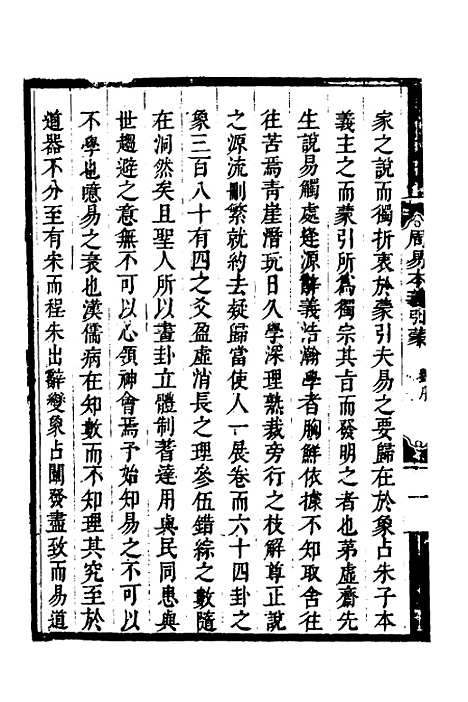 周易本義引蒙
家之說而獨折衷於蒙引夫易之要歸在於象占朱子本
義主之而蒙引所爲獨宗其旨而發明之者也第虛齋先
生說易觸處逢源解義浩瀚學者胸鮮依據不知取舍往
往苦焉青崖潛玩日久學深理熟裁旁行之枝解尊正說
之源流刪繁就約去疑歸當使人一展卷而六十四卦之
象三百八十有四之爻盈虛消長之理參伍錯綜之數隨
在洞然矣且聖人所以畫卦立體制蓍達用與民同患與
世趨避之意無不可以心領神會焉予始知易之不可以
不學也噫易之衰也漢儒病在知數而不知理其究至於
道器不分至有宋而程朱出辭變象占闡發盡致而易道